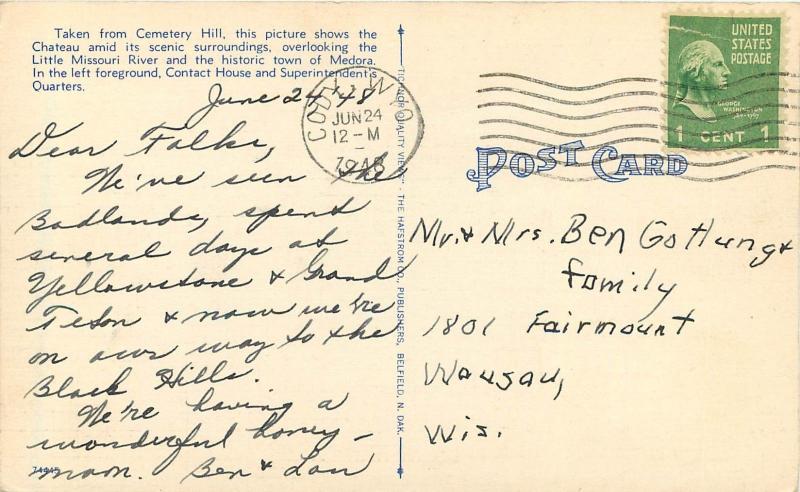 Taken from Cemetery Hill, this picture shows the
Chateau amid its scenic surroundings, overlooking the
Little Missouri River and the historic town of Medora.
In the left foreground, Contact House and Superintendent's
Quarters.
June 24 '48
Dear Folks,
We've seen the
Badlands, spent
several days at
Yellowstone & Grand
Teton & now we're
on our way to the
Black Hills.
We're having a
wonderful honey-
moon. Ben & Lou
74445
TICHNOR QUALITY VIEWS - THE HAFSTROM CO., PUBLISHERS, BELFIELD, N. DAK.
CODY, WYO
JUN 24
12-M
1948
UNITED
STATES
POSTAGE
GEORGE
WASHINGTON
1 CENT 1
POST CARD
Mr. & Mrs. Ben Gottung &
family
1801 Fairmount
Wausau,
Wis.